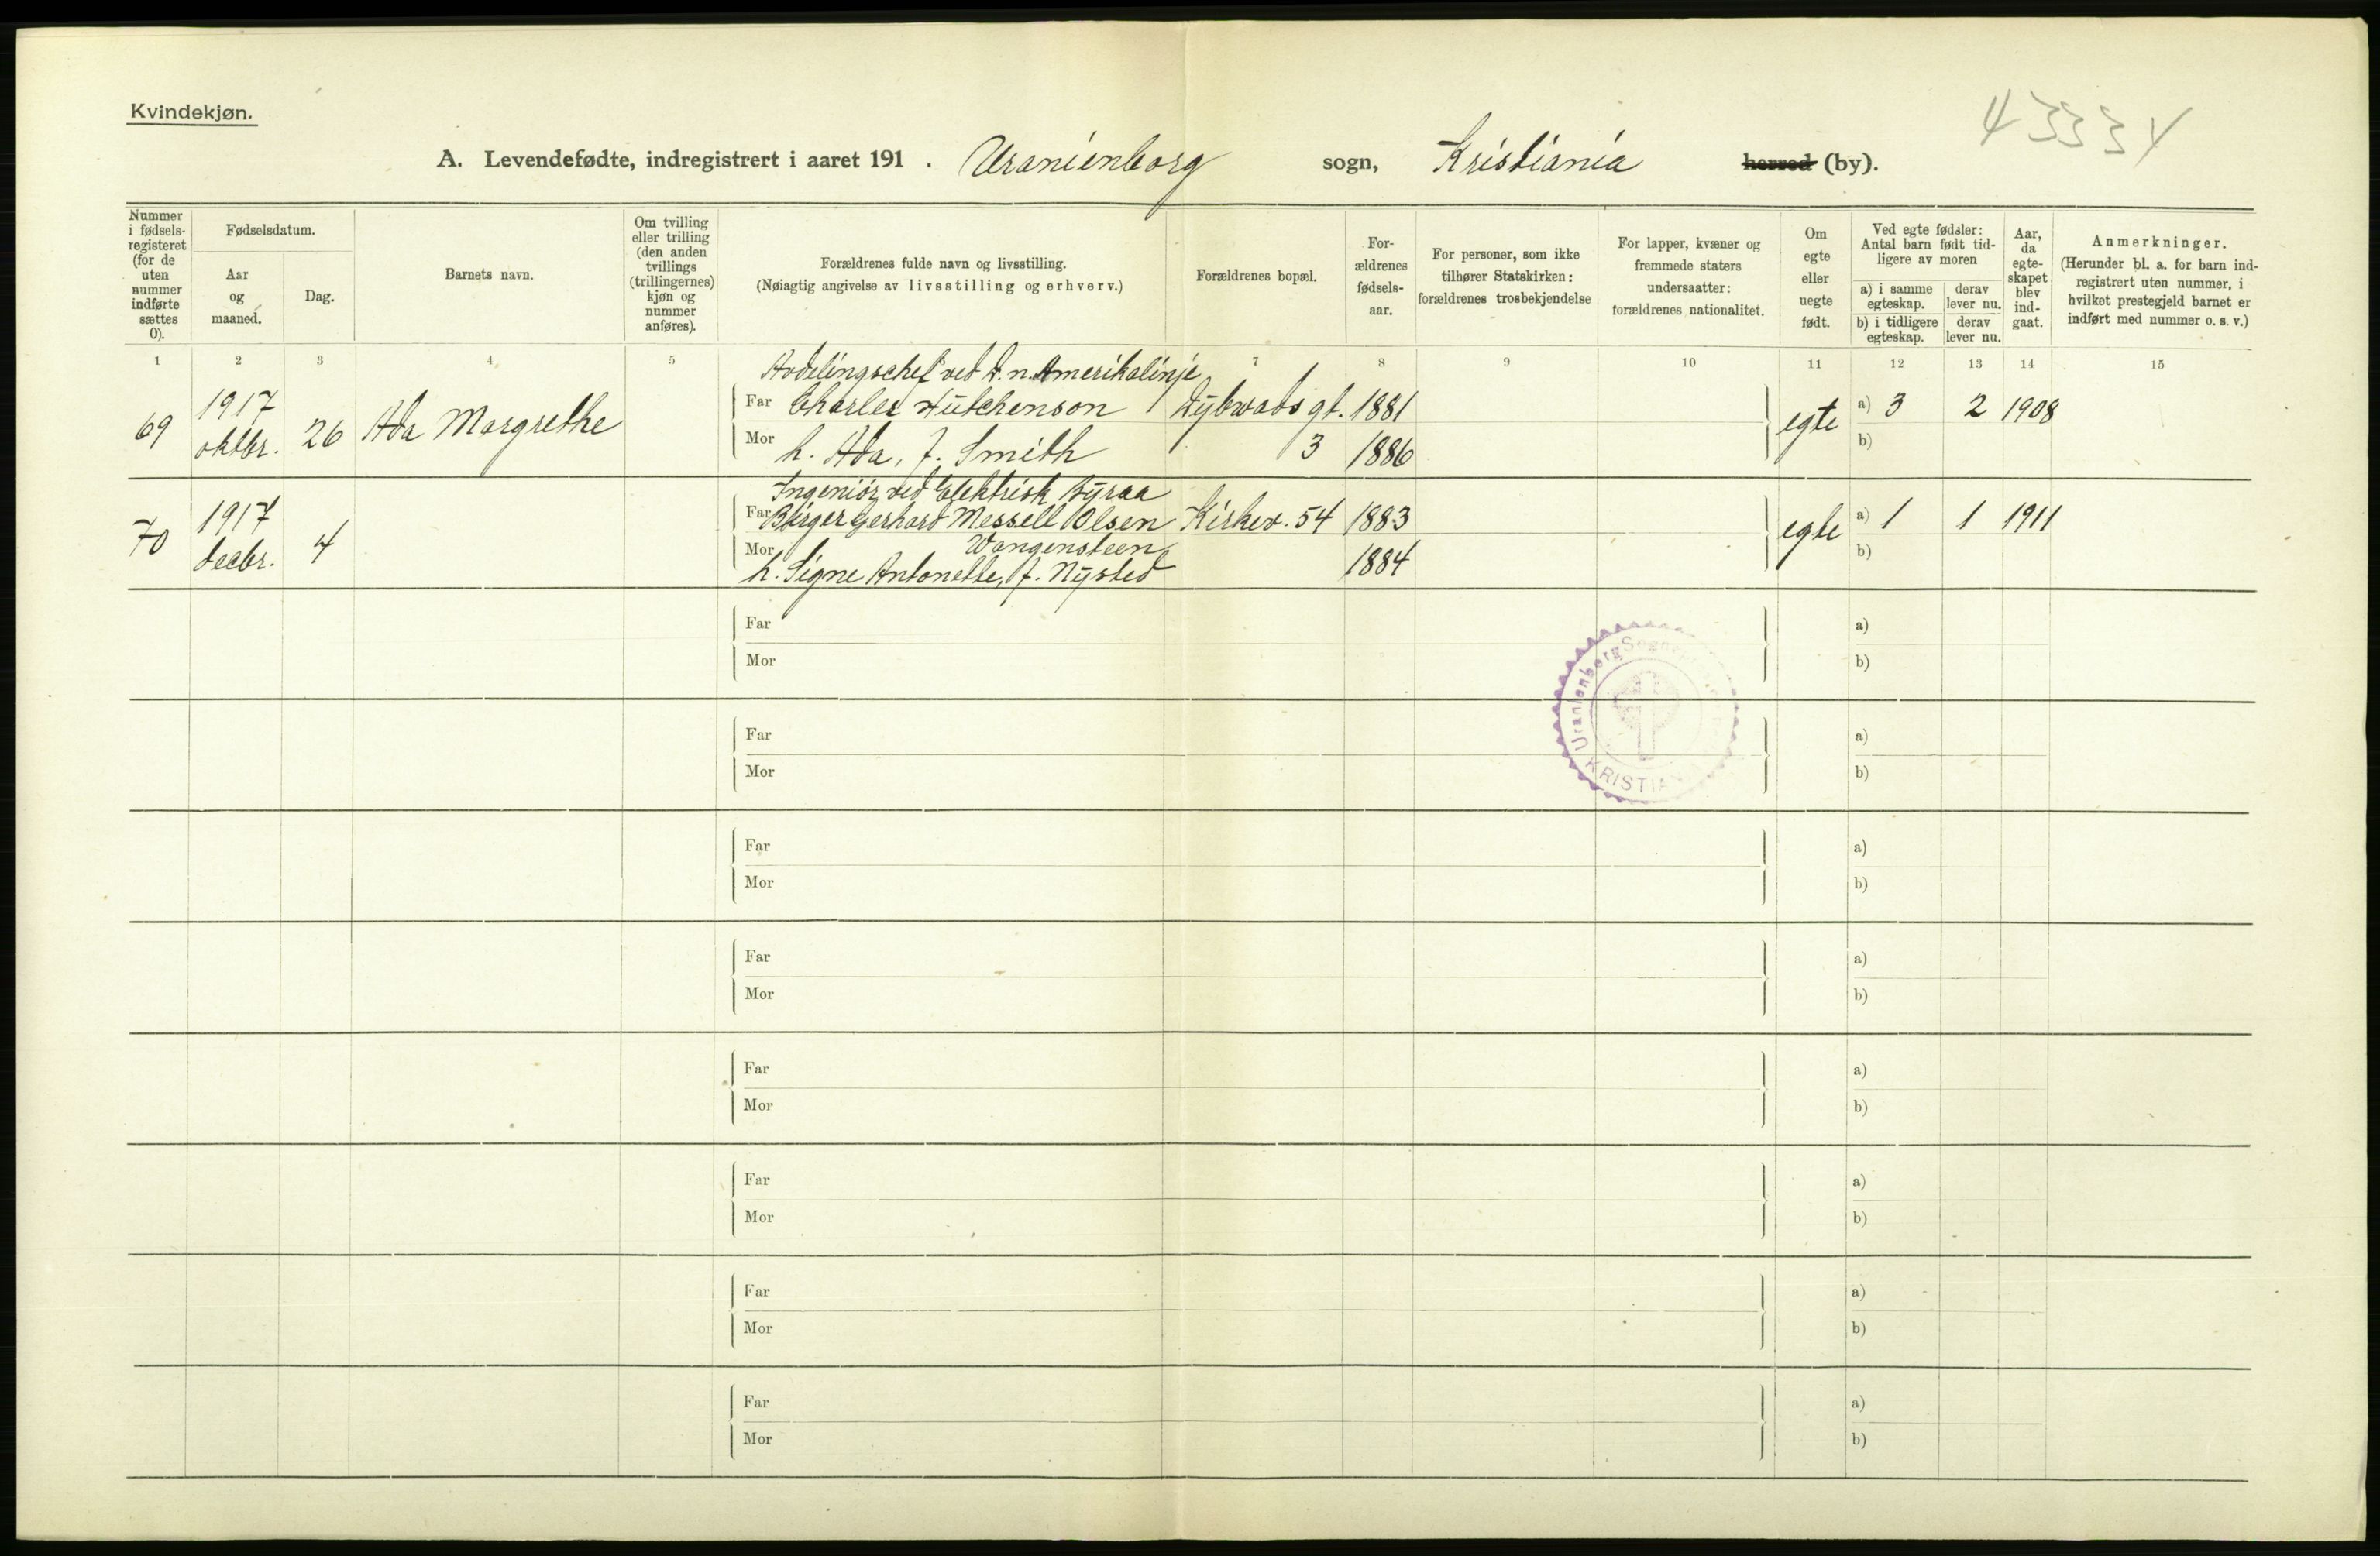 Kvindekjøn.
43334
A. Levendefødte, indregistrert i aaret 191 . Uranienborg sogn, Kristiania herred (by).
Nummer i fødsels-registeret (for de uten nummer indførte sættes 0).
Fødselsdatum.
Aar og maaned.
Dag.
Barnets navn.
Om tvilling eller trilling (den anden tvillings (trillingernes) kjøn og nummer anføres).
Forældrenes fulde navn og livsstilling.
(Nøiagtig angivelse av livsstilling og erhverv.)
Forældrenes bopæl.
For-ældrenes fødsels-aar.
For personer, som ikke tilhører Statskirken: forældrenes trosbekjendelse
For lapper, kvæner og fremmede staters undersaatter: forældrenes nationalitet.
Om egte eller uegte født.
Ved egte fødsler: Antal barn født tid-ligere av moren
a) i samme egteskap.
derav lever nu.
b) i tidligere egteskap.
derav lever nu.
Aar, da egte-skapet blev ind-gaat.
Anmerkninger.
(Herunder bl. a. for barn ind-registrert uten nummer, i hvilket prestegjeld barnet er indført med nummer o. s. v.)
1 2 3 4 5 7 8 9 10 11 12 13 14 15
Avdelingschef ved d. n. Amerikalinje
69 1917 oktbr. 26 Ada Margrethe Far Charles Hutchenson Dybwads gt. 3 1881 egte a) 3 2 1908
Mor h. Ada, f. Smith 1886 b)
Ingeniør ved Elektrisk Byraa
70 1917 decbr. 4 Far Birger Gerhard Messell Olsen Kirkev. 54 1883 egte a) 1 1 1911
Wangensteen
Mor h. Signe Antonette, f. Nysted 1884 b)
Far a)
Mor b)
Far a)
Mor b)
Far a)
Mor b)
Far a)
Mor b)
Far a)
Mor b)
Far a)
Mor b)
Far a)
Mor b)
Far a)
Mor b)
Uranienborg
KRISTIA